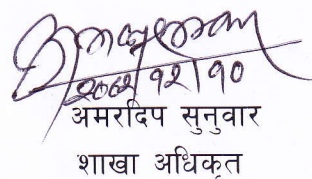 २०८२।१२।१०
अमरदिप सुनुवार
शाखा अधिकृत